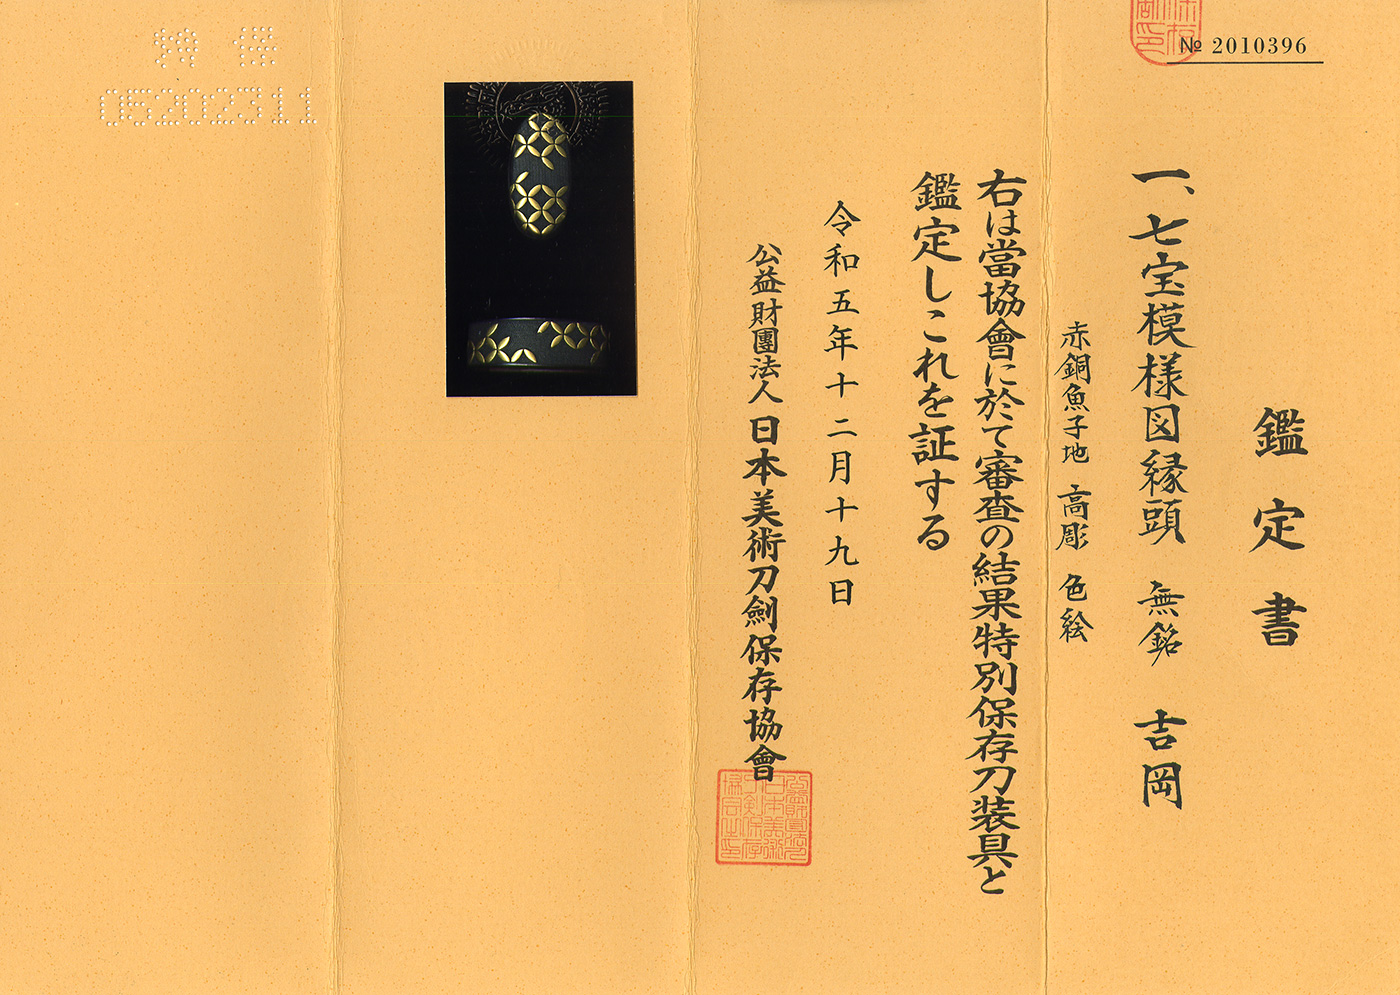 № 2010396
鑑定書
一、七宝模様図縁頭 無銘 吉岡
赤銅魚子地 高彫 色絵
右は當協會に於て審査の結果特別保存刀装具と
鑑定しこれを証する
令和五年十二月十九日
公益財團法人 日本美術刀劍保存協會
05202311